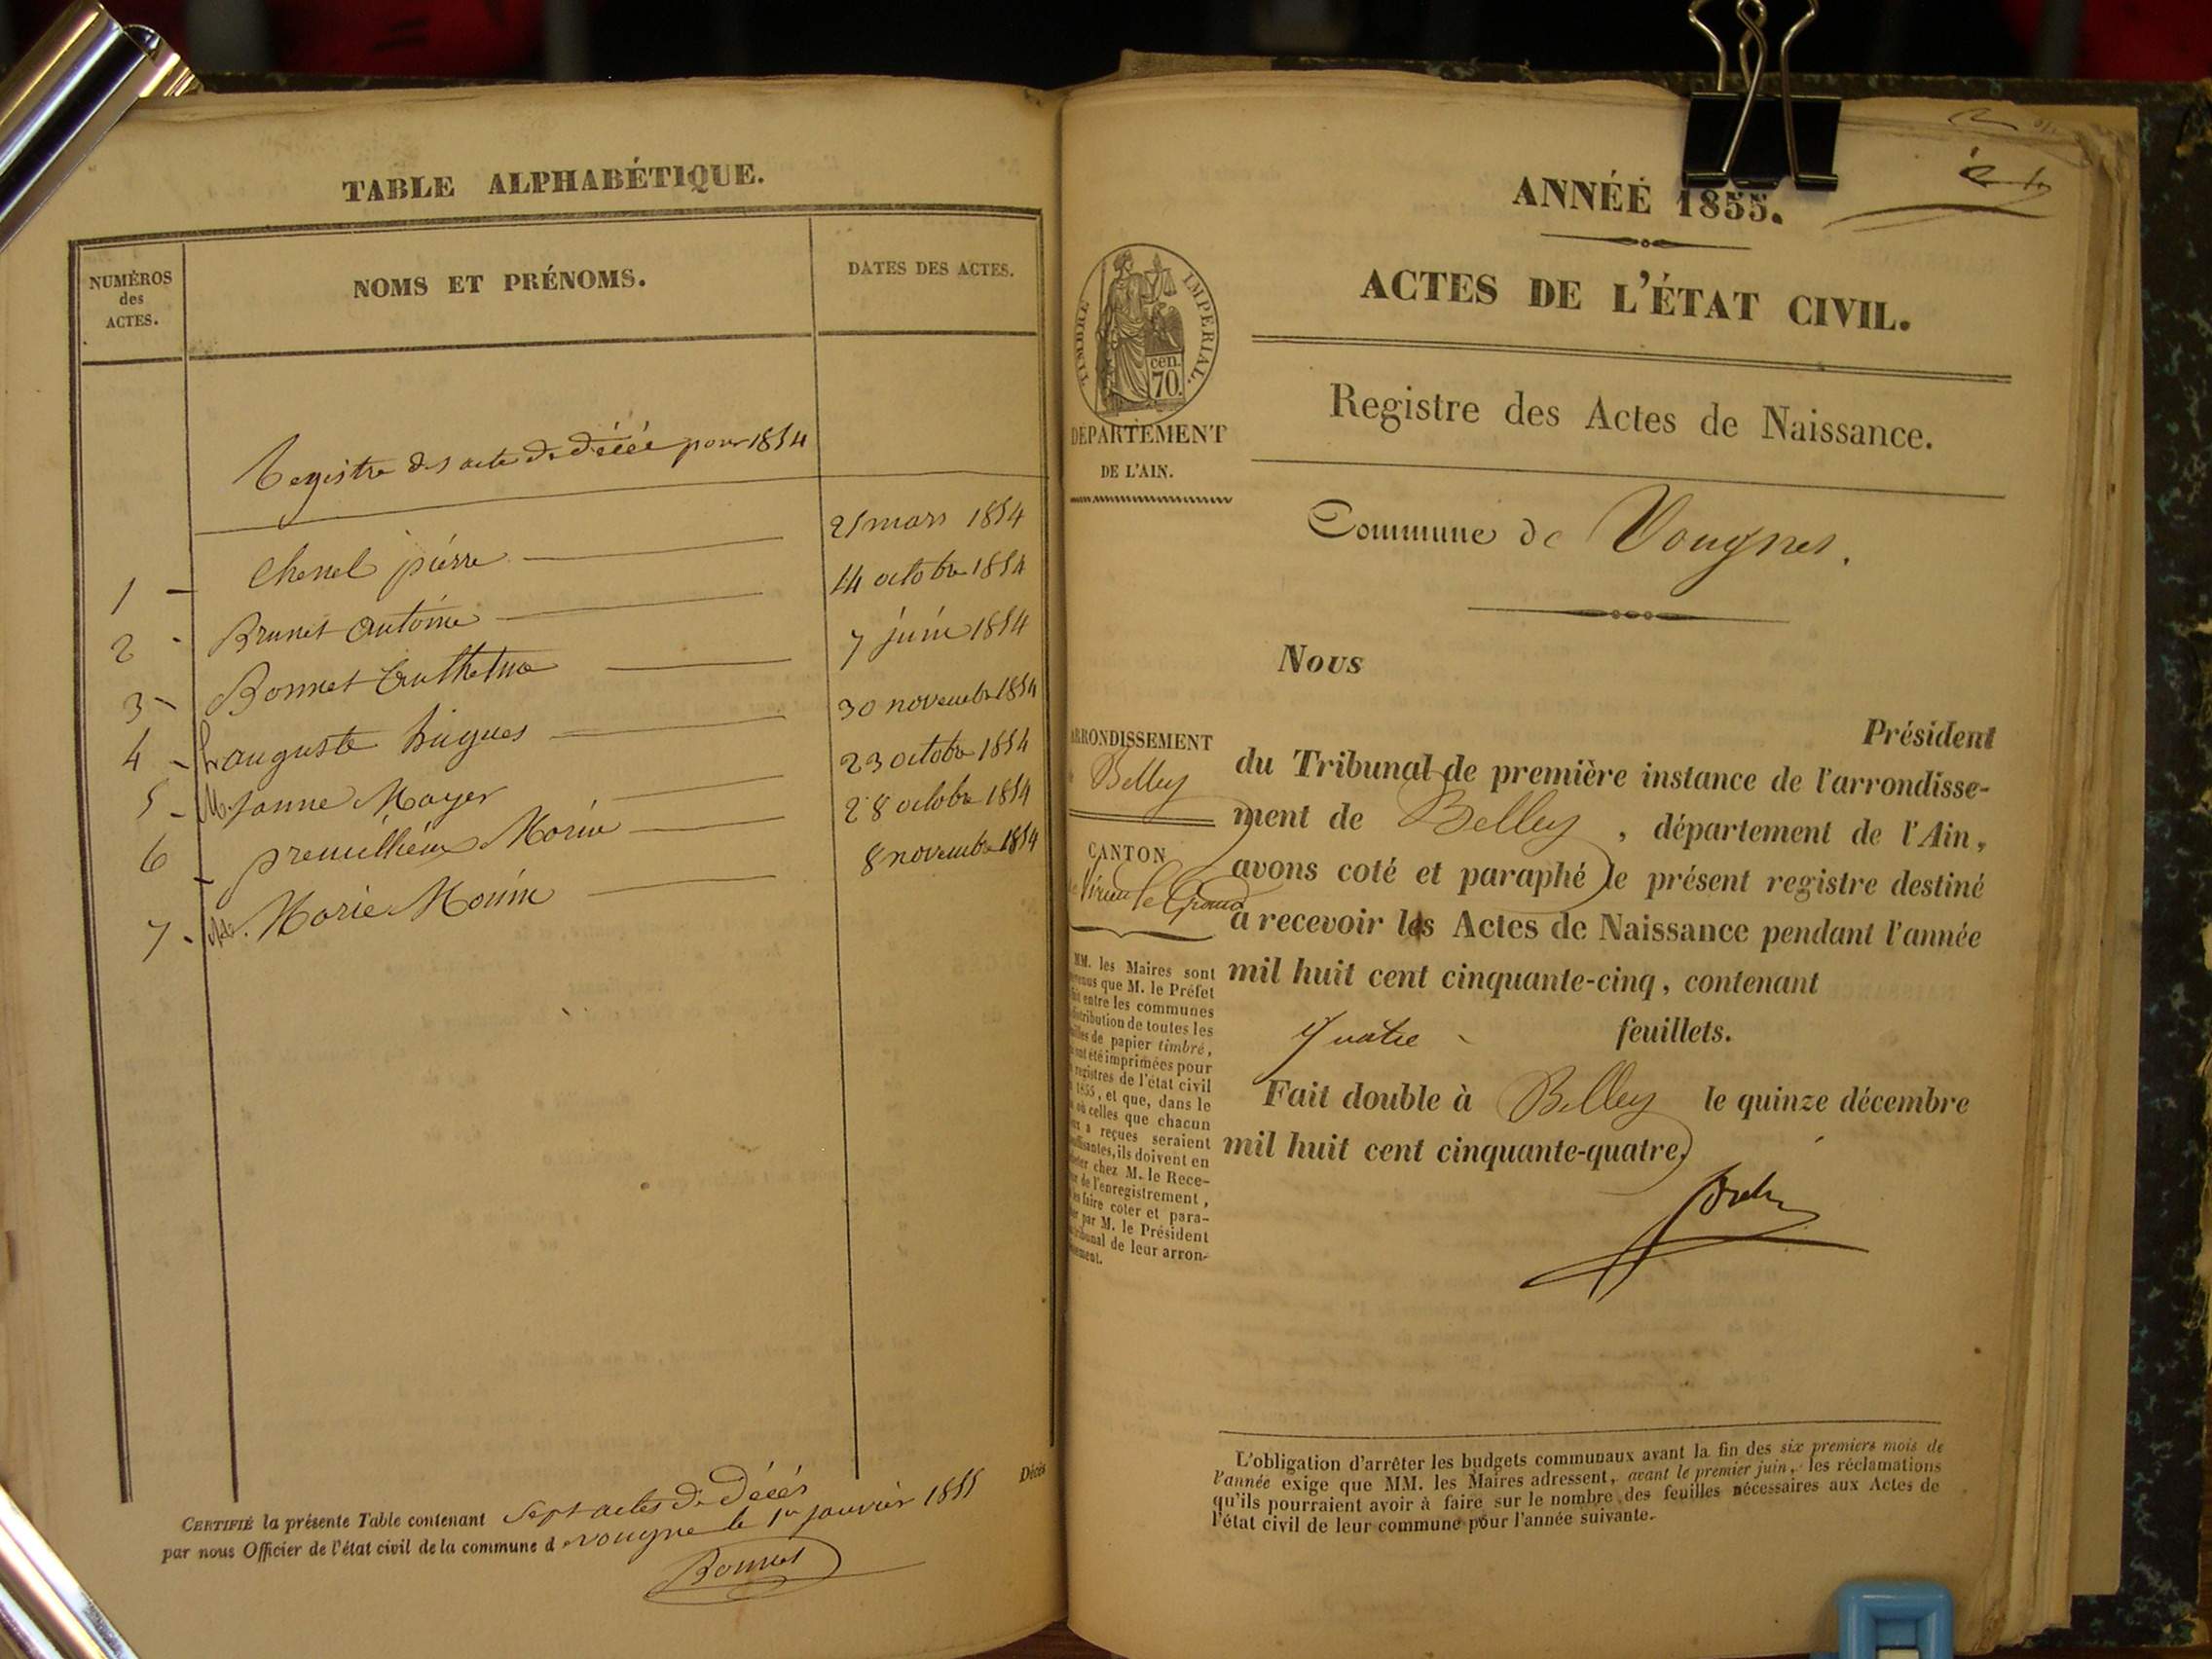 TABLE ALPHABÉTIQUE.
NUMÉROS
des
ACTES.
NOMS ET PRÉNOMS.
DATES DES ACTES.
Registre des acte de décéé pour 1854
1 - Chenel pierre 25 mars 1854
2 - Brunet Antoine 14 octobre 1854
3 - Bonnet 7 juin 1854
4 - Lauguste hugues 30 novembre 1854
5 - Janne Mayer 23 octobre 1854
6 - premillieux Morin 28 octobre 1854
7 - Marie Morin 8 novembre 1854
Décès
CERTIFIÉ la présente Table contenant sept actes de Décés
par nous Officier de l'état civil de la commune d e vougne le 1er janvier 1855
Bonnet
ANNÉE 1855.
ACTES DE L'ÉTAT CIVIL.
TIMBRE IMPÉRIAL.
cen.
70.
DÉPARTEMENT
DE L'AIN.
Registre des Actes de Naissance.
Commune de Vougnes.
Nous
Président
ARRONDISSEMENT
Belley
CANTON
Virieu le Grand
du Tribunal de première instance de l'arrondisse-
ment de Belley, département de l'Ain,
avons coté et paraphé le présent registre destiné
à recevoir les Actes de Naissance pendant l'année
mil huit cent cinquante-cinq, contenant
quatre feuillets.
Fait double à Belley le quinze décembre
mil huit cent cinquante-quatre.
MM. les Maires sont
que M. le Préfet
entre les communes
de toutes les
de papier timbré,
ont été imprimées pour
registres de l'état civil
1855, et que, dans le
où celles que chacun
a reçues seraient
ils doivent en
chez M. le Rece-
de l'enregistrement,
faire coter et para-
par M. le Président
de leur arron-
L'obligation d'arrêter les budgets communaux avant la fin des six premiers mois de
l'année exige que MM. les Maires adressent, avant le premier juin, les réclamations
qu'ils pourraient avoir à faire sur le nombre des feuilles nécessaires aux Actes de
l'état civil de leur commune pour l'année suivante.